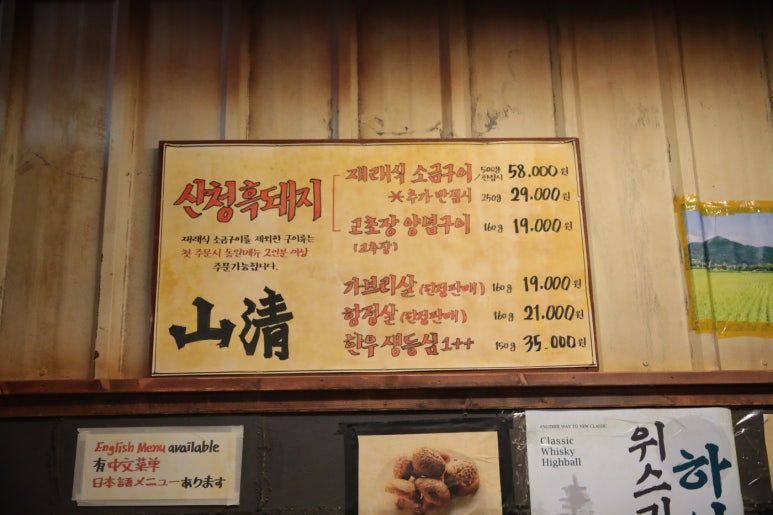 산청흑돼지
재래식 소금구이를 제외한 구이류는
첫 주문시 동일메뉴 2인분 이상
주문가능합니다.
山清
재래식 소금구이 500g/한접시 58.000원
※추가 반접시 250g 29.000원
고초장 양념구이 160g 19.000원
(고추장)
가브리살 (한정판매) 160g 19.000원
항정살 (한정판매) 160g 21.000원
한우 생등심 1++ 150g 35.000원
English Menu available
有中文菜单
日本語メニューあります
ANOTHER WAY TO NEW CLASSIC
Classic
Whisky
Highball
위스키
하